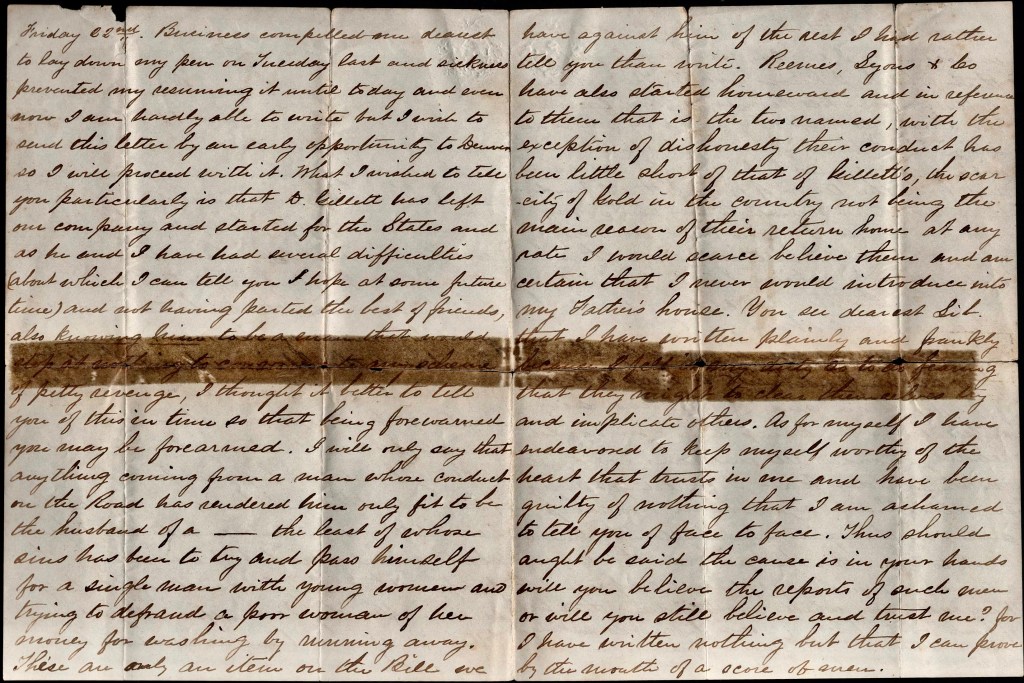 Friday 22nd. Business compelled me dearest
to lay down my pen on Tuesday last and sickness
prevented my resuming it until today and even
now I am hardly able to write but I wish to
send this letter by an early opportunity to Denver
so I will proceed with it. What I wished to tell
you particularly is that D. Gillett has left
our company and started for the States and
as he and I have had several difficulties
(about which I can tell you I hope at some future
time) and not having parted the best of friends,
also knowing him to be a man that would
of petty revenge, I thought it better to tell
you of this in time so that being forewarned
you may be forearmed. I will only say that
anything coming from a man whose conduct
on the Road has rendered him only fit to be
the husband of a — the least of whose
sins has been to try and pass himself
for a single man with young women and
trying to defraud a poor woman of her
money for washing by running away.
These are only an item on the Bill we
have against him of the rest I had rather
tell you than write. Reeves, Lyons & Co
have also started homeward and in reference
to them that is the two named, with the
exception of dishonesty their conduct has
been little short of that of Gillett's, the scar-
-city of Gold in the country not being the
main reason of their return home at any
rate I would scarce believe them and am
certain that I never would introduce into
my Father's house. You see dearest Lib.
that I have written plainly and frankly
that they might to clear themselves try
and implicate others. As for myself I have
endeavored to keep myself worthy of the
heart that trusts in me and have been
guilty of nothing that I am ashamed
to tell you of face to face. Thus should
aught be said the cause is in your hands
will you believe the reports of such men
or will you still believe and trust me? for
I have written nothing but that I can prove
by the mouth of a score of men.